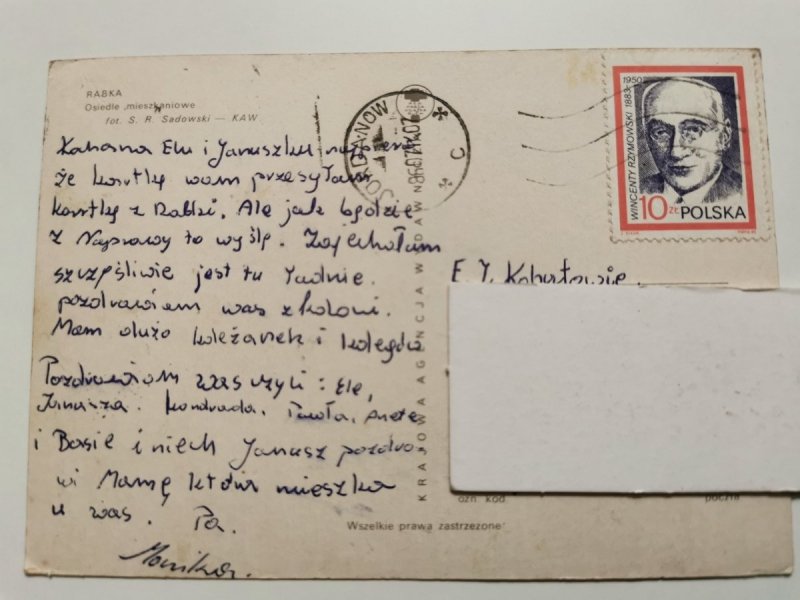 RABKA
Osiedle mieszkaniowe
fot. S. R. Sadowski — KAW
Kochana Elu i Januszku najpierw
że kartkę wam przesyłam
kartkę z Rabki. Ale jak będzie
z Naprawy to wyślę. Zajechałam
szczęśliwie jest tu ładnie.
pozdrawiam was z koloni.
Mam dużo koleżanek i kolegów
Pozdrawiam was czyli: Elę,
Janusza. Kondrada, Pawła, Anetę
i Basię i niech Janusz pozdro-
wi Mamę która mieszka
u was. Pa.
Monika.
JORDANÓW
C
WINCENTY RZYMOWSKI 1883-1950
10 ZŁ POLSKA
E. J.
KRAJOWA AGENCJA WYDAWN
ozn. kod
poczt
Wszelkie prawa zastrzeżone